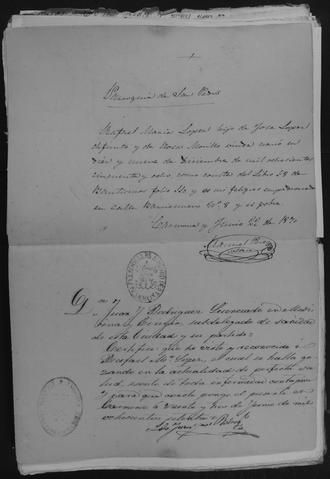 Parroquia de San Pedro
Rafael Maria Lopez hijo de Jose Lopez
difunto y de Rosa Morillo viuda nació en
diez y nueve de Diciembre de mil ochocientos
cincuenta y ocho como consta del Libro 58 de
Bautismos folio 120 y es mi feligres empadronado
en calle Nº 8 y es pobre.
Carmona y Junio 22 de 1870
Juan J Rodriguez Licenciado en Medicina
y Cirugia, subdelegado de sanidad
de esta Ciudad y su partido
Certifico que he visto y reconocido á
Rafael Mª Lopez, el cual se halla go
zando en la actualidad de perfecta sa
lud, esento de toda enfermedad contagiosa,
Y para que conste pongo el presente en
Carmona á veinte y tres de Junio de mil
ochocientos setenta